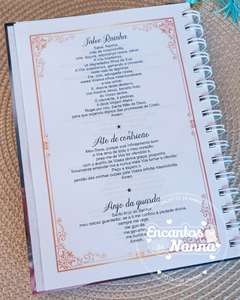 Salve Rainha
Salve, Rainha
mãe de misericórdia,
vida, doçura, esperança nossa, salve!
A Vós bradamos,
os degredados filhos de Eva.
A Vós suspiramos, gemendo e chorando
neste vale de lágrimas.
Eia, pois, advogada nossa,
esses vossos olhos misericordiosos
a nós volvei.
E, depois deste desterro,
nos mostrai Jesus, bendito fruto
do Vosso ventre.
Ó clemente, ó piedosa,
ó doce Virgem Maria.
Rogai por nós, Santa Mãe de Deus,
para que sejamos dignos das promessas de Cristo.
Amém.
Ato de contrição
Meu Deus, porque sois infinitamente bom
e Vos amo de todo o meu coração,
pesa-me de Vos ter ofendido e,
com o auxílio da Vossa divina graça, proponho
firmemente emendar-me e nunca mais Vos tornar a ofender.
Peço e espero o
perdão das minhas culpas pela Vossa infinita misericórdia.
Amém.
Anjo da guarda
Santo Anjo do Senhor,
meu zeloso guardador, se a ti me confiou a piedade divina
sempre me rege,
me
Amém.
Encantos
da
Nanna